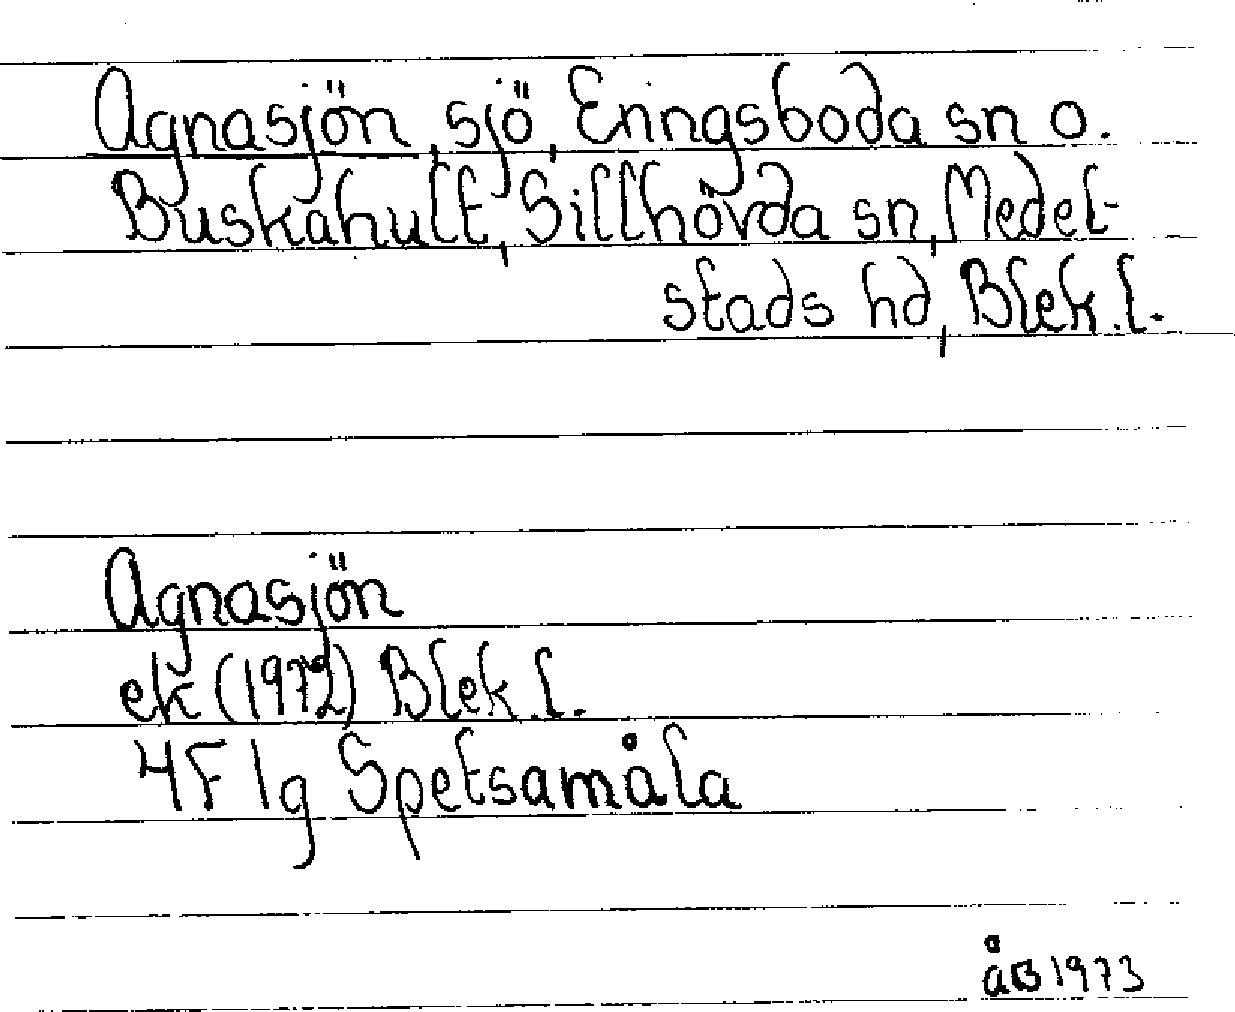 Agnasjön, sjö, Eringsboda sn o.
Buskahult, Sillhövda sn, Medel-
stads hd, Blek. l.
Agnasjön
ek (1972) Blek. l.
4F 1g Spetsamåla
åB 1973